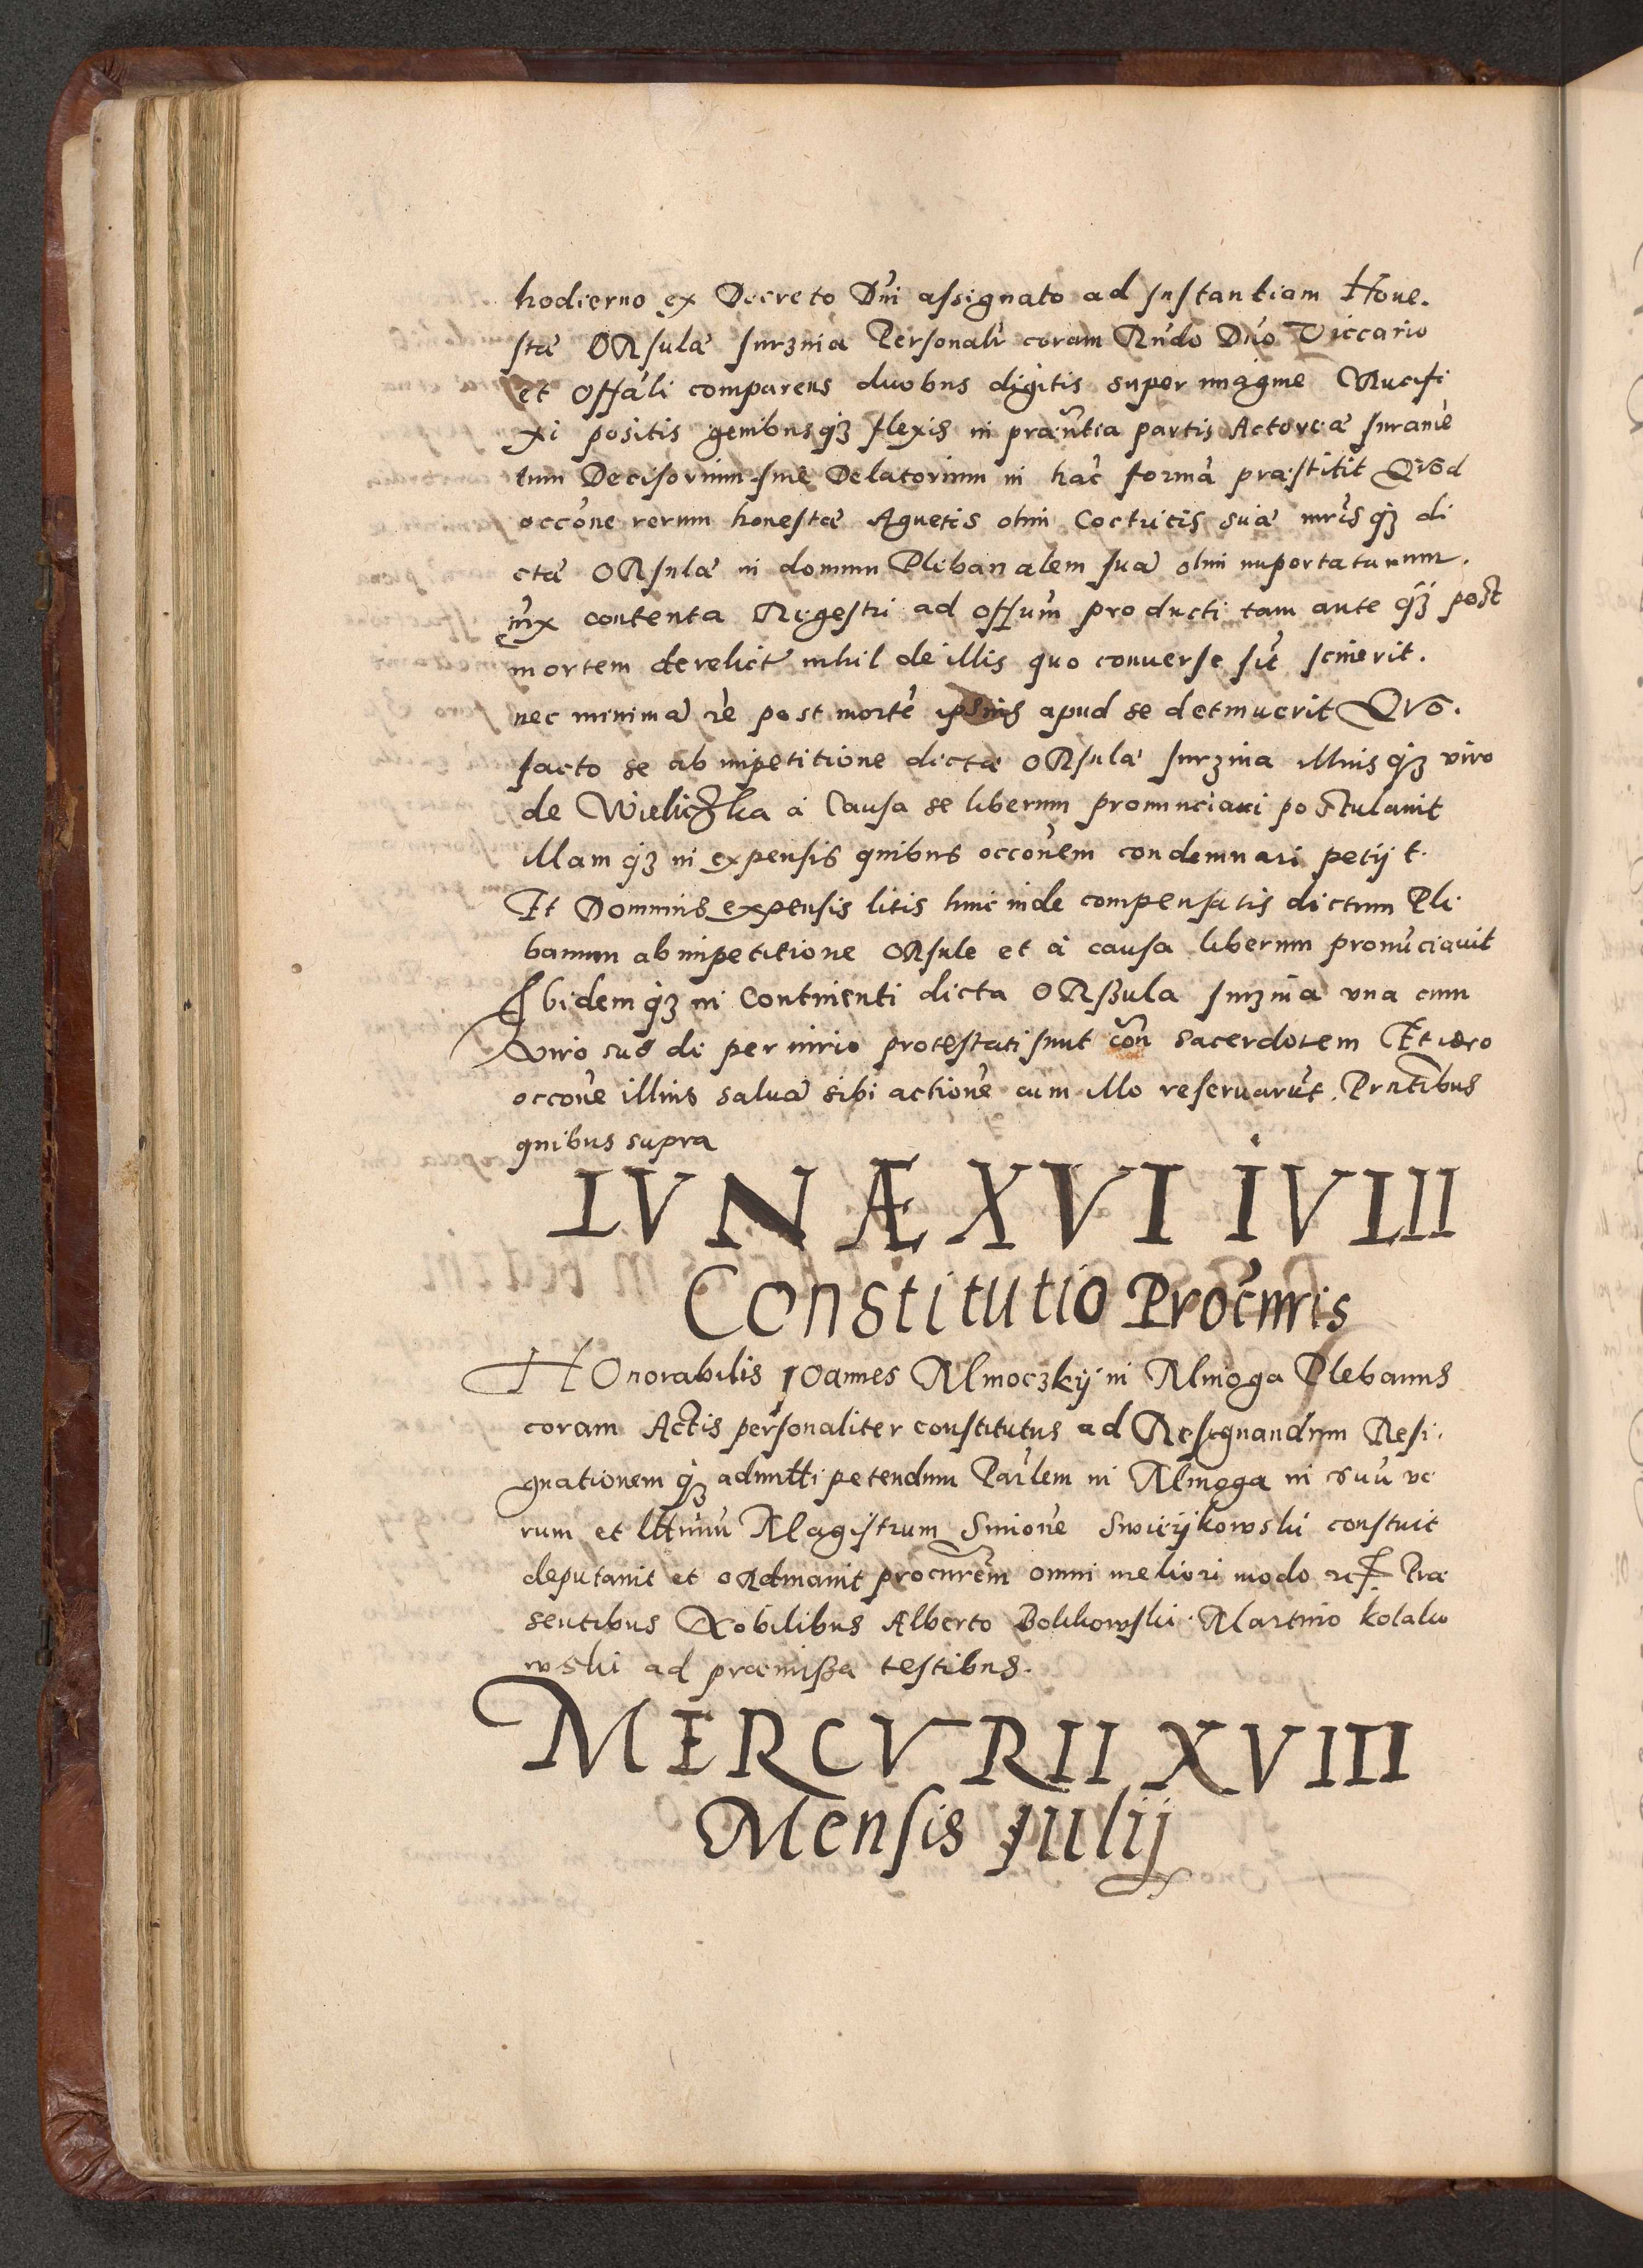 hodierno ex Decreto Dñi assignato ad Instantiam Hone.
stæ ORsulæ Jurznia Personalr̃ coram Rñdo Dño Viccario
et Offali comparens duobus digitis super imagine CRucifi
xi positis genibusqȝ flexis in præñtia partis Actoreæ Iuramẽ
tum Decisorium siue Delatorium in hac formã præstitit Qvod
occõne rerum honestæ Agnetis olim Coctricis suæ mr̃isqȝ di
ctæ ORsulæ in domum Plibanalem suã olim importatarum.
in Rx contenta Regestri ad Offum producti tam ante qȝ post
mortem derelict nihil de illis quo conuerse sĩt sciuerit.
nec minimã rẽ post mortẽ ipsius apud se detinuerit Qvo.
facto se ab impetitione dictæ ORsulæ Jurznia illiusqȝ viro
de Wieliczka a Causa se liberum pronunciari postulauit
illamqȝ in expensis quibus occõnem condemnari petijt.
Et Dominus expensis litis hinc inde compensatis dictum Pli
banum ab impetitione ORsule et a causa liberum pronũciauit
Ibidemqȝ in Continenti dicta ORszula Jurznia vna cum
viro suo de periurio protestati sunt con̄ sacerdotem Et vero
occõne illius saluã sibi actionẽ cum illo reseruarũt. Prñtibus
quibus supra
LVNÆ XVI IVLII
Constitutio Procuris
HOnorabilis Joannes Mnoczkij in Mnoga Plebanus
coram Actis personaliter constitutus ad Resignandum Resi.
gnationemqȝ admitti petendum Parlem in Mnoga in suũ ve
rum et lttimũ Magistrum Simonẽ Swieijkowski constuit
deputauit et ORdinauit procurem omni meliori modo rc Præ
sentibus Nobilibus Alberto Bolikowski Martino kolako
wski ad præmissa testibus.
MERCVRII XVIII
Mensis Julij